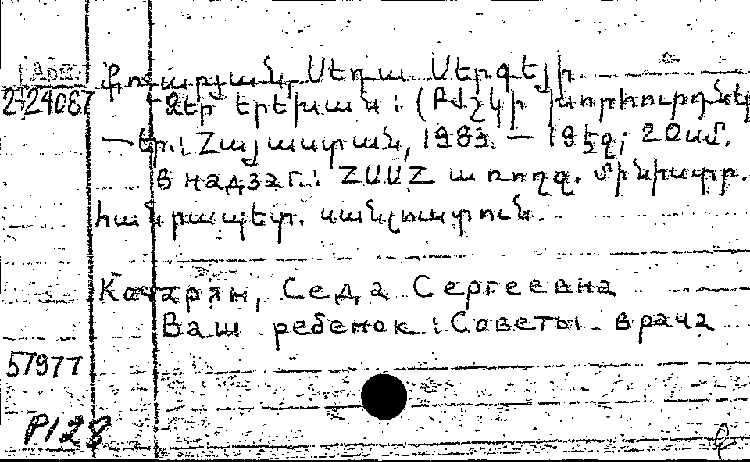 Арм.
2-24087
Քոչարյան, Սեդա Սերգեյի
Ձեր երեխան: (Բժշկի խորհուրդներ
— Եր.: Հայաստան, 1983. — 195 էջ; 20 սմ.
В надзаг.: ՀՍՍՀ առողջ. մինիստր.
հանրապետ. սանլուստուն.
Кочарян, Седа Сергеевна
Ваш ребенок: Советы врача
57977
P128